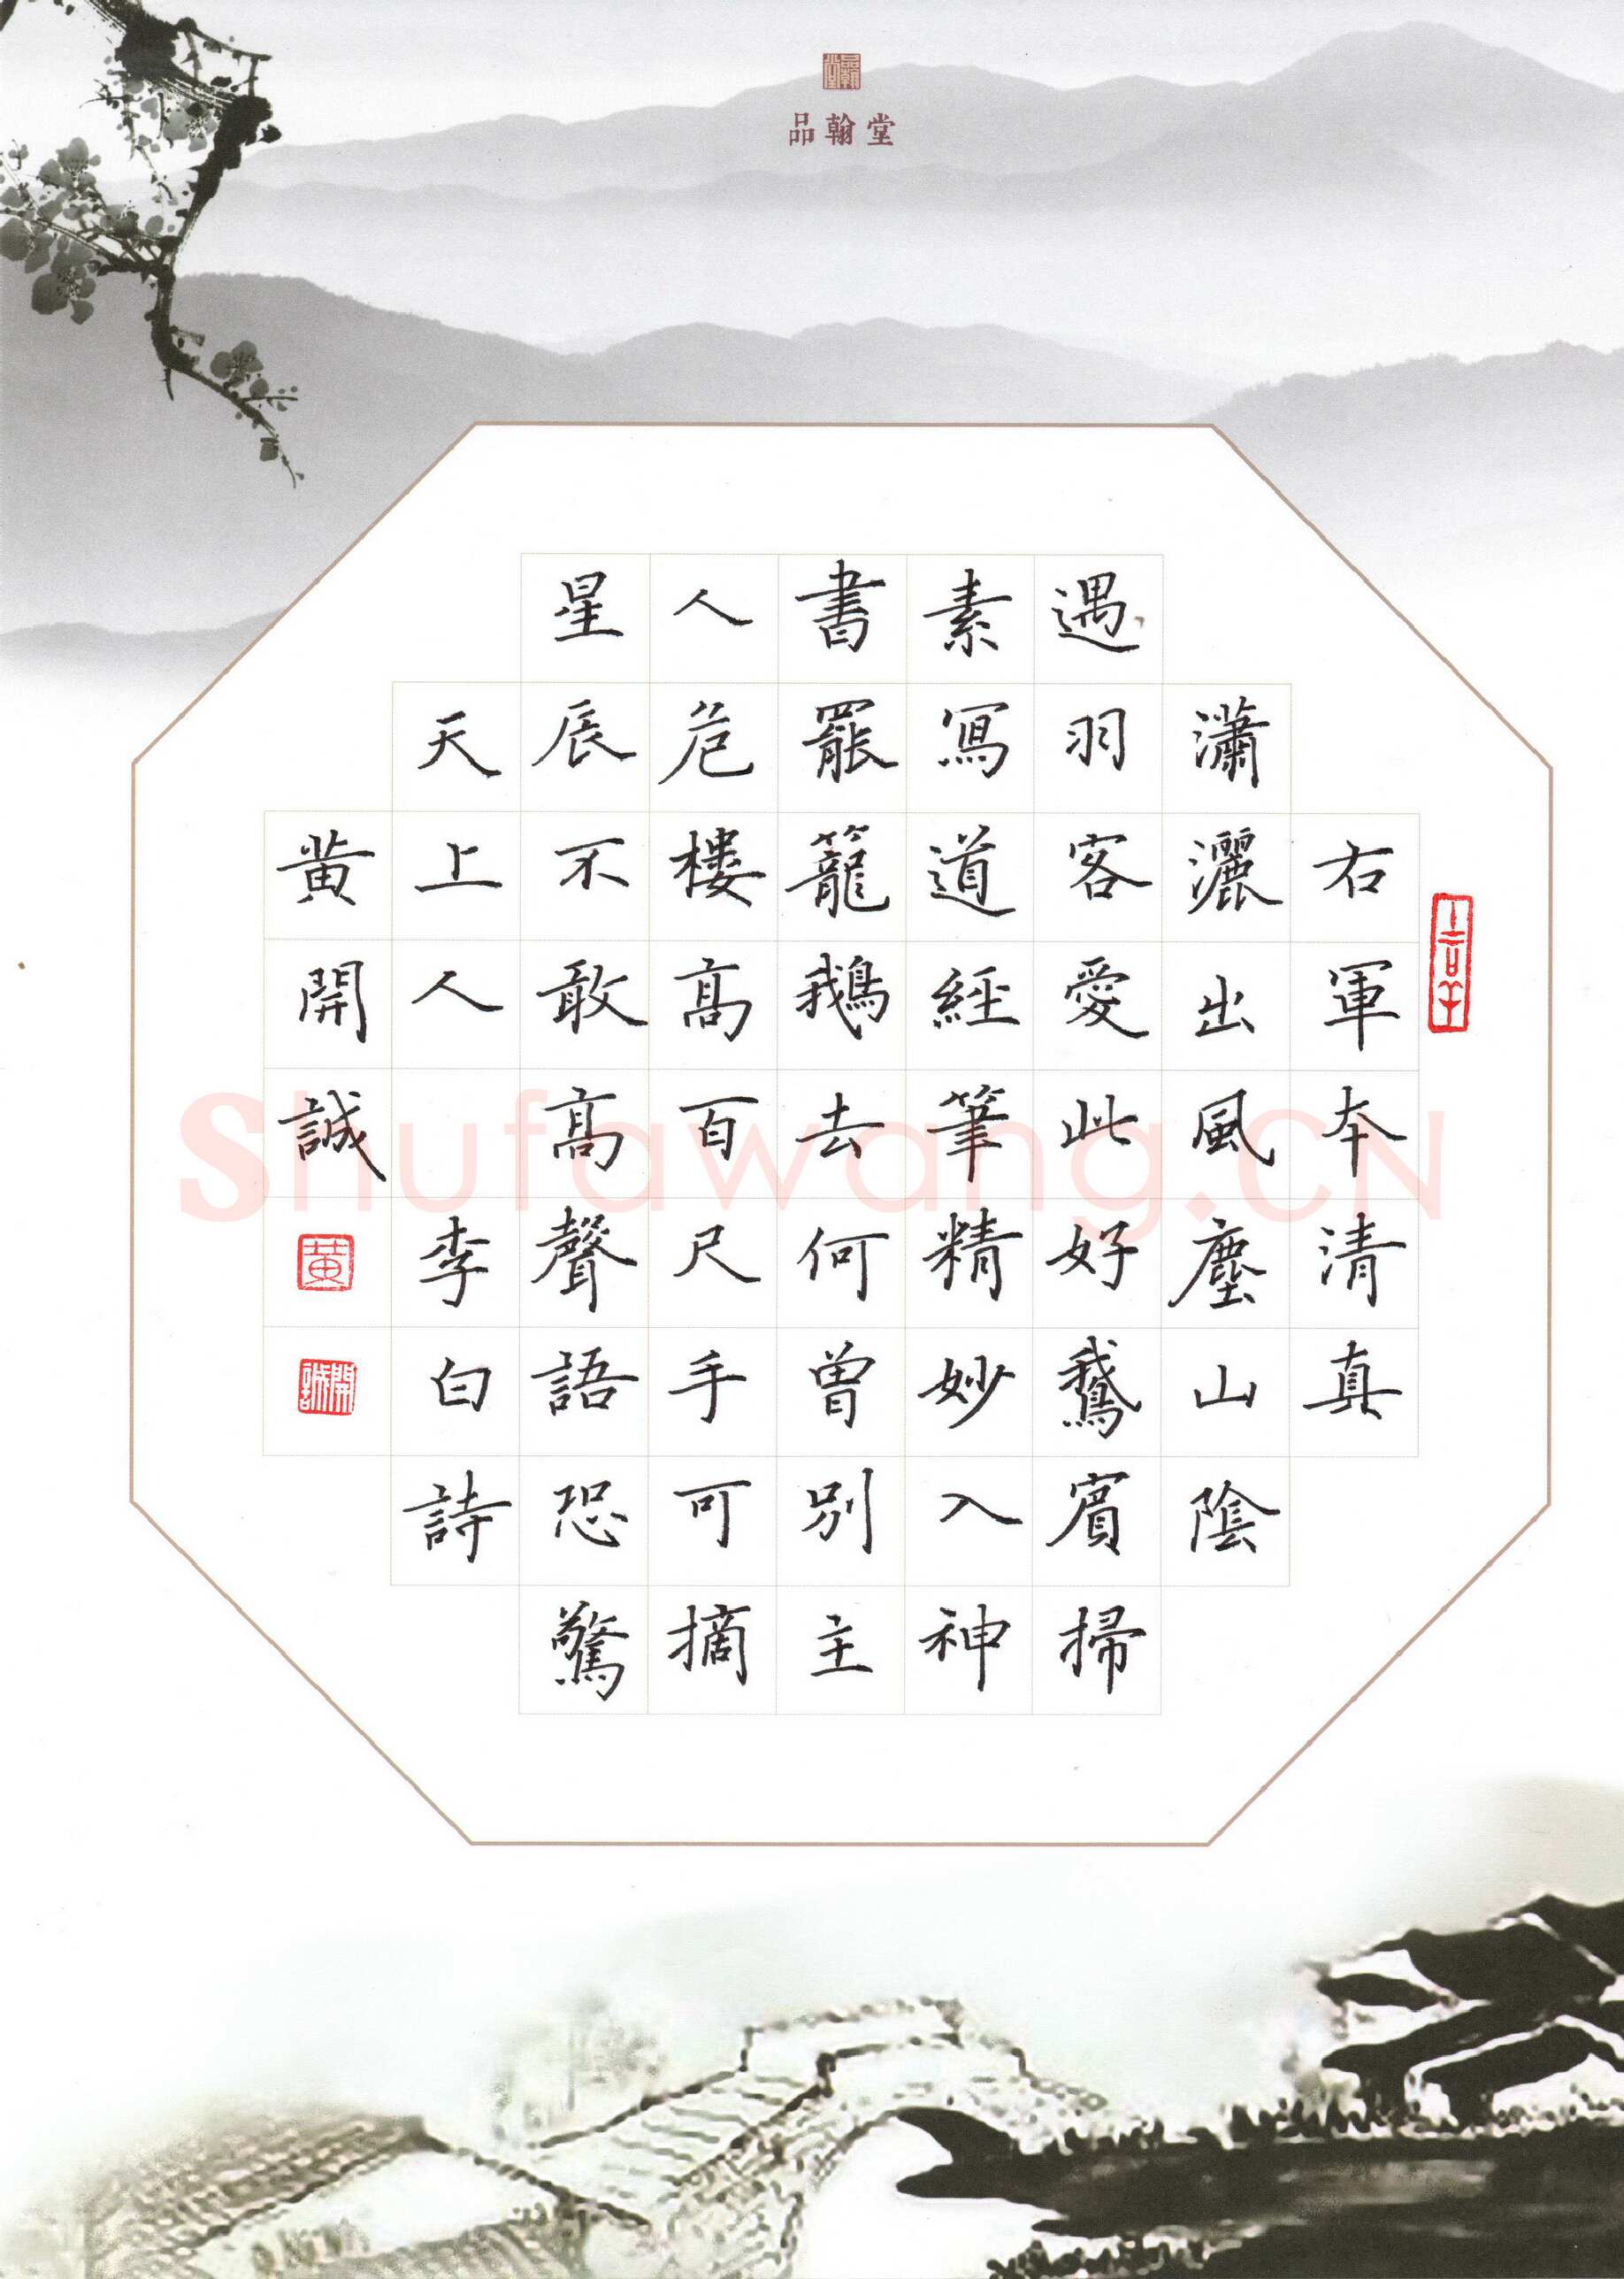 品翰堂
右軍本清真
瀟灑出風塵山陰
遇羽客愛此好鵞賓掃
素寫道經筆精妙入神
書罷籠鵝去何曾別主
人危樓高百尺手可摘
星辰不敢高聲語恐驚
天上人李白詩
黃開誠
黃
開誠
Shufawang.CN